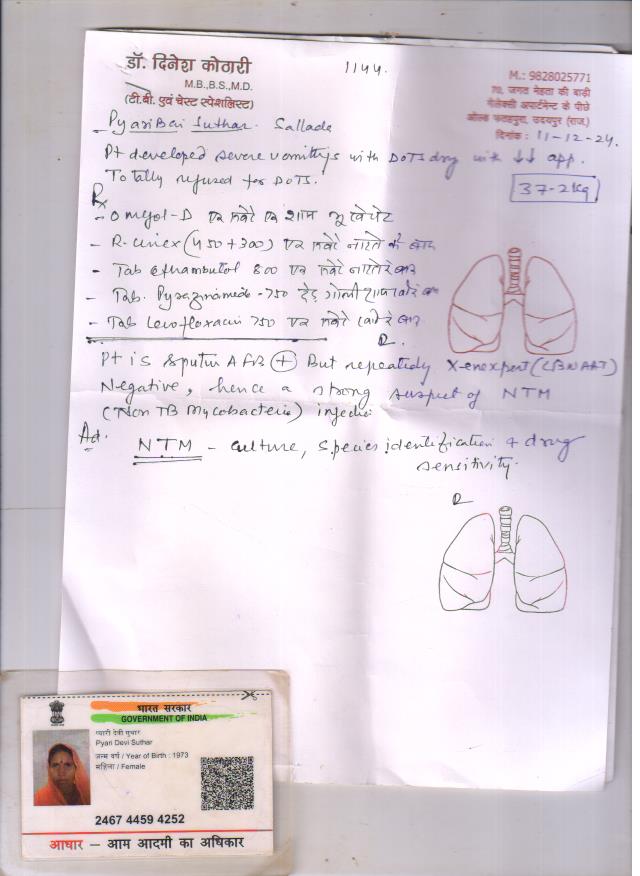 डॉ. दिनेश कोठारी
M.B.,B.S.,M.D.
(टी.बी. एवं चेस्ट स्पेशलिस्ट)
1144.
M.: 9828025771
70, जगत मेहता की बाड़ी
गेलेक्सी अपार्टमेन्ट के पीछे
ओल्ड फतहपुरा, उदयपुर (राज.)
दिनांक: 11-12-24.
Pyari Bai Suthar. Sallada
Pt developed severe vomittys with DOTS drug with ↓↓ app.
Totally refused for DOTS.
37-2kg
Rx
- Omyol-D एक सवेरे एक शाम भूखे पेट
- R-cinex (450+300) एक सवेरे नाश्ते के बाद
- Tab ethambutol 800 एक सवेरे नाश्ते के बाद
- Tab. Pyrazinamide - 750 डेढ़ गोली शाम
- Tab Levofloxacin 750 एक सवेरे
Pt is Sputum AFB (+) But repeatedly X-enexpert (CBNAAT)
Negative, hence a strong suspect of NTM
(Non TB Mycobacteria) infectio
Ad.
NTM - culture, Species identification + drug
sensitivity.
भारत सरकार
GOVERNMENT OF INDIA
प्यारी देवी सुथार
Pyari Devi Suthar
जन्म वर्ष / Year of Birth : 1973
महिला / Female
2467 4459 4252
आधार – आम आदमी का अधिकार